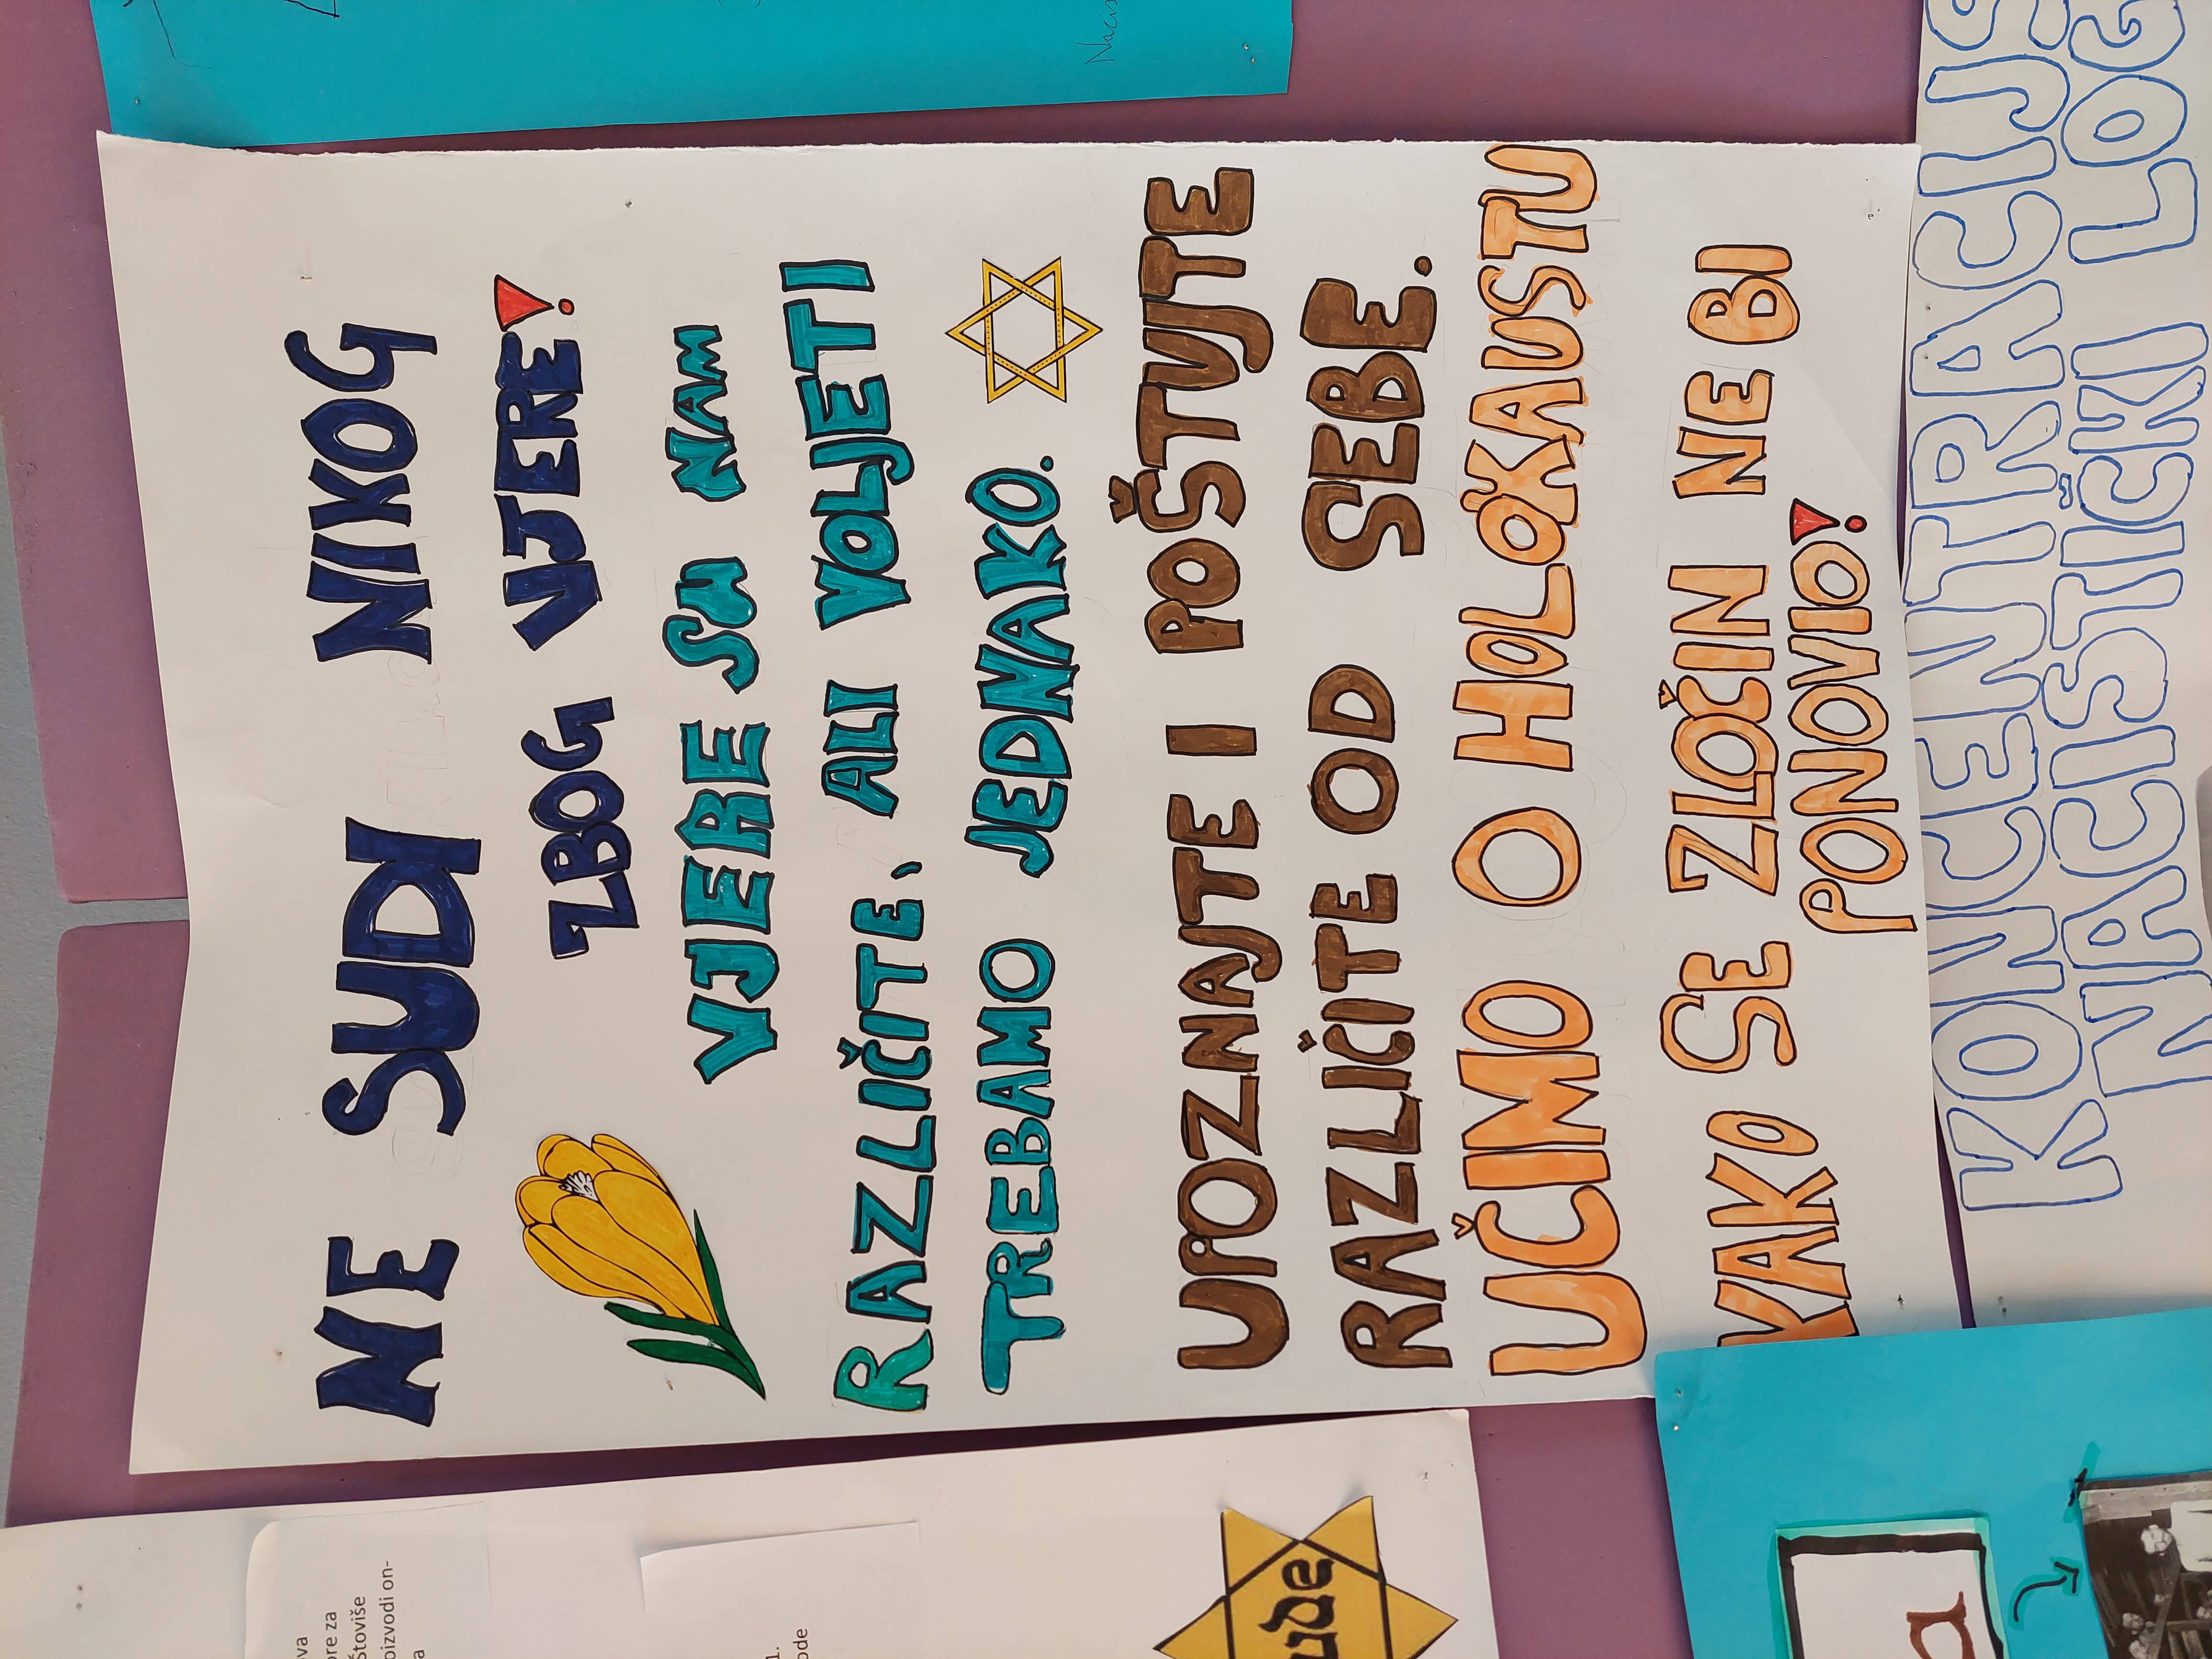 NE SUDI NIKOG
ZBOG VJERE!
VJERE SU NAM
RAZLIČITE, ALI VOLJETI
TREBAMO JEDNAKO.
UPOZNAJTE I POŠTUJTE
RAZLIČITE OD SEBE.
UČIMO O HOLOKAUSTU
KAKO SE ZLOČIN NE BI
PONOVIO!
KONCENTRACIJS
NACISTIČKI LOG
Nacis
ova
ore za
Štoviše
oizvodi on-
a
1.
ode
ude
a